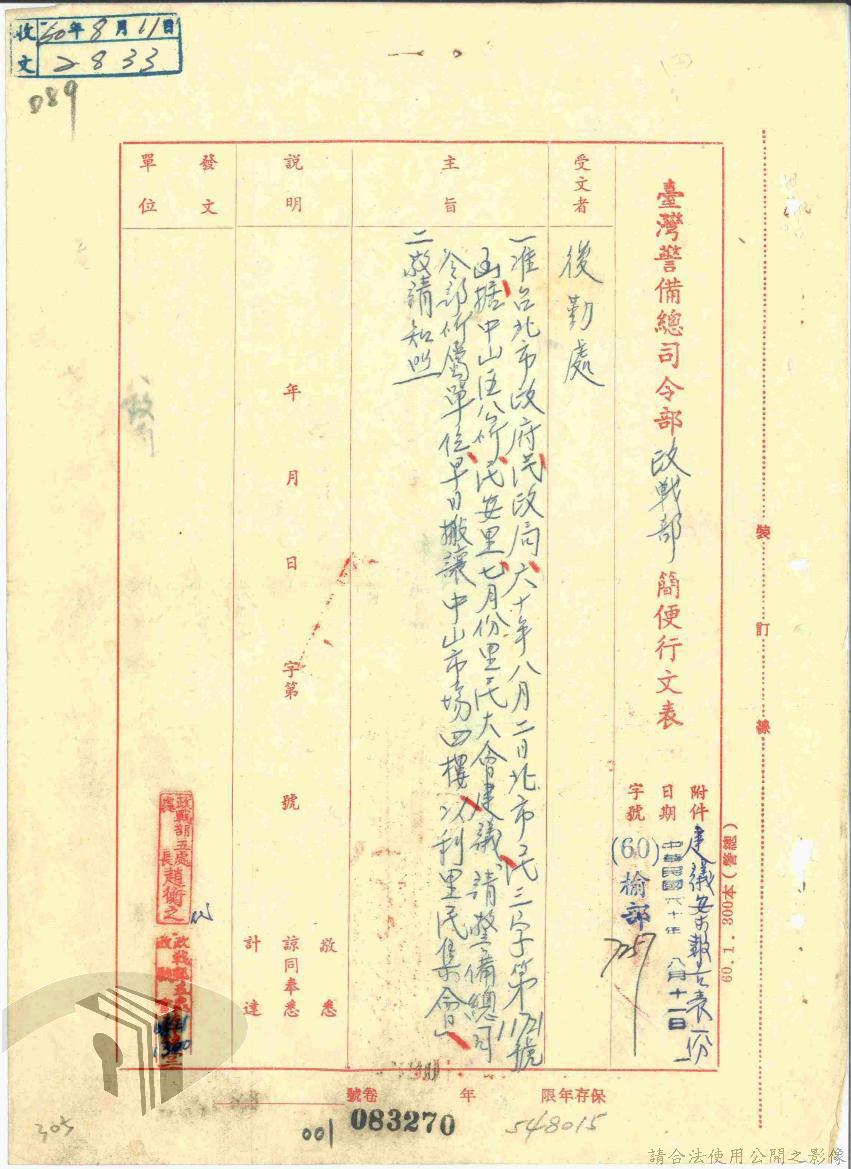 收文 60年8月11日
2833
089
臺灣警備總司令部政戰部簡便行文表
附件 建議案報告表一份
日期 中華民國六十年八月十一日
字號 (60)榆部 7257
受文者
後勤處
主旨
一准台北市政府民政局六十年八月二日北市民三字第11721號
函據中山區公所民安里七月份里民大會建議「請警備總司
令部所屬單位早日撤讓中山市場四樓以利里民集會」
二敬請知照
說明
年 月 日 字第 號
敬悉
諒同奉悉
計達
發文單位
政戰部五處處長趙衡之
代
裝訂線
60.1.300本(警總)
保存年限 年 卷號
083270
001
548015
305
請合法使用公開之影像